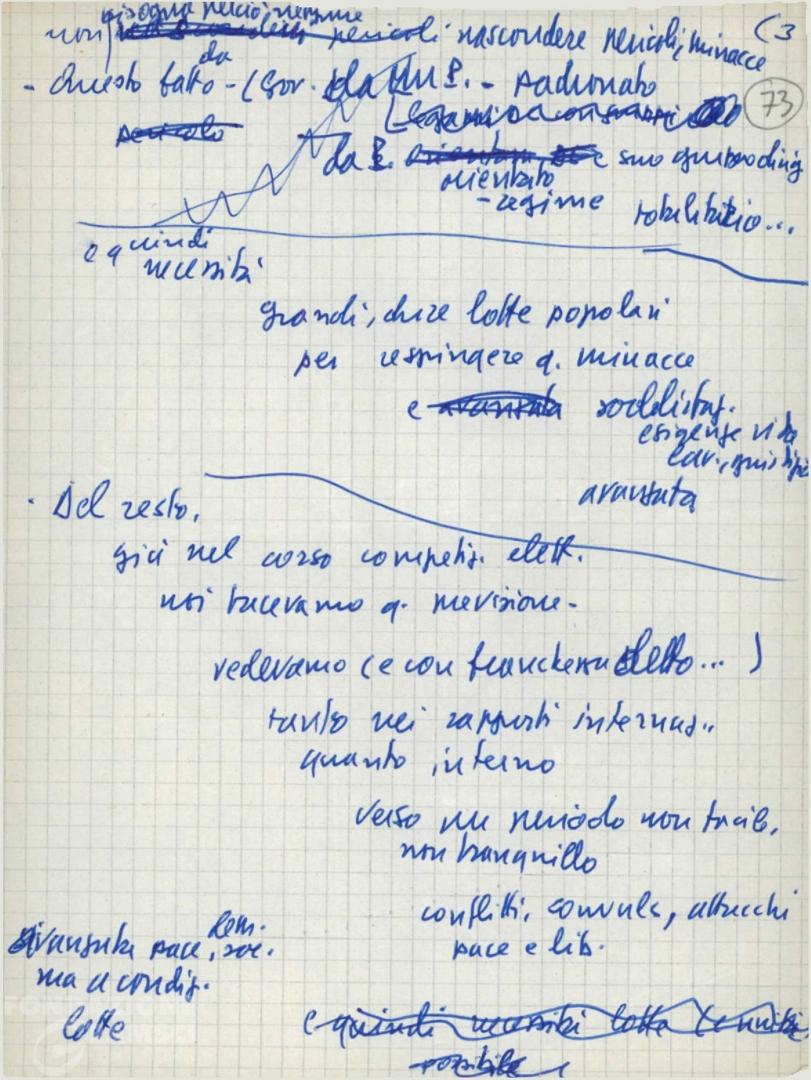 bisogna perciò, nessuno
(3
non pericoli nascondere pericoli, minacce
73
da
- Questo fatto - (Gov. da Mu P. - padronato
legami
pericolo
da P. e suo
orientato
- regime
e quindi
necessità
grandi, dure lotte popolari
per respingere q. minacce
e avanzata soddisfaz.
esigenze vita
lav.,
avanzata
. Del resto,
già nel corso competiz. elett.
noi facevamo q. previsione -
vedevamo (e con franchezza detto... )
tanto nei rapporti internaz..
quanto interno
verso un periodo non facile,
non tranquillo
conflitti, convuls, attacchi
pace e lib.
dem.
avanzata pace, soc.
ma a condiz.
lotte
e quindi necessità lotta
possibile